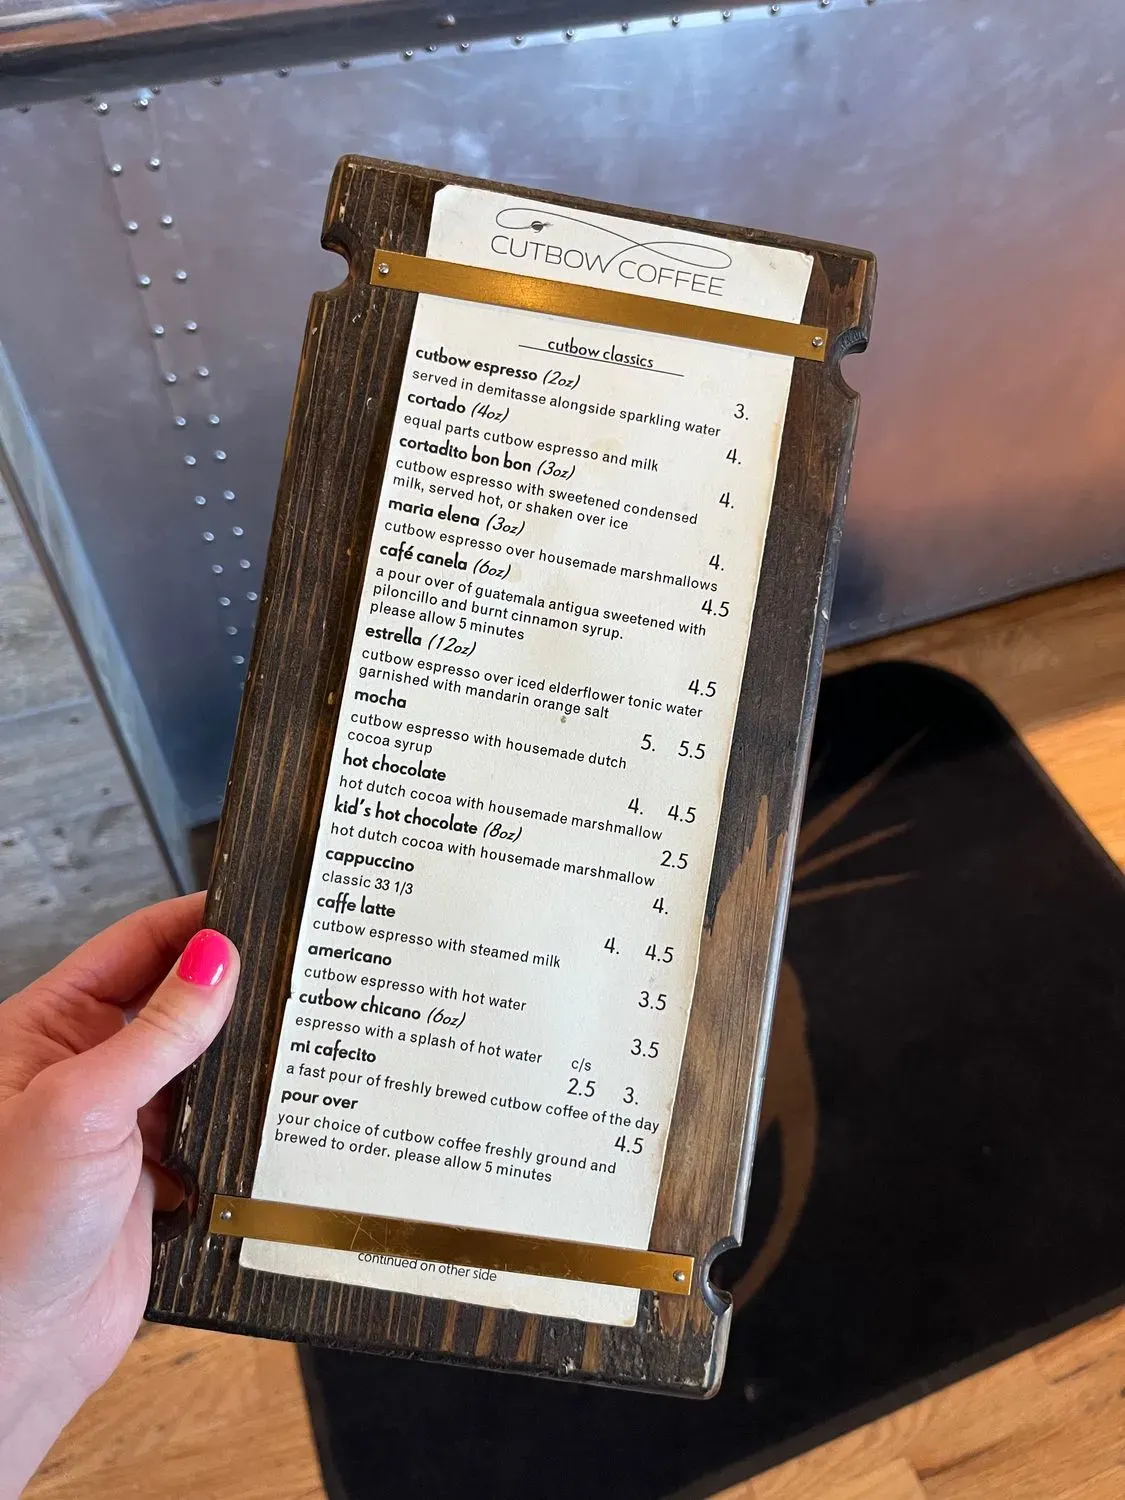 CUTBOW COFFEE
cutbow classics
cutbow espresso (2oz) 3.
served in demitasse alongside sparkling water
cortado (4oz) 4.
equal parts cutbow espresso and milk
cortadito bon bon (3oz) 4.
cutbow espresso with sweetened condensed
milk, served hot, or shaken over ice
maria elena (3oz) 4.
cutbow espresso over housemade marshmallows
café canela (6oz) 4.5
a pour over of guatemala antigua sweetened with
piloncillo and burnt cinnamon syrup.
please allow 5 minutes
estrella (12oz) 4.5
cutbow espresso over iced elderflower tonic water
garnished with mandarin orange salt
mocha 5. 5.5
cutbow espresso with housemade dutch
cocoa syrup
hot chocolate 4. 4.5
hot dutch cocoa with housemade marshmallow
kid's hot chocolate (8oz) 2.5
hot dutch cocoa with housemade marshmallow
cappuccino 4.
classic 33 1/3
caffe latte 4. 4.5
cutbow espresso with steamed milk
americano 3.5
cutbow espresso with hot water
cutbow chicano (6oz) 3.5
espresso with a splash of hot water
c/s
mi cafecito 2.5 3.
a fast pour of freshly brewed cutbow coffee of the day
pour over 4.5
your choice of cutbow coffee freshly ground and
brewed to order. please allow 5 minutes
continued on other side